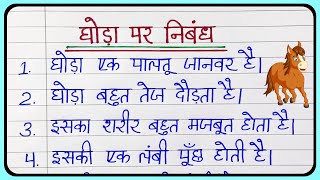 घोड़ा पर निबंध
1. घोड़ा एक पालतू जानवर है।
2. घोड़ा बहुत तेज दौड़ता है।
3. इसका शरीर बहुत मजबूत होता है।
4. इसकी एक लंबी पूँछ होती है।